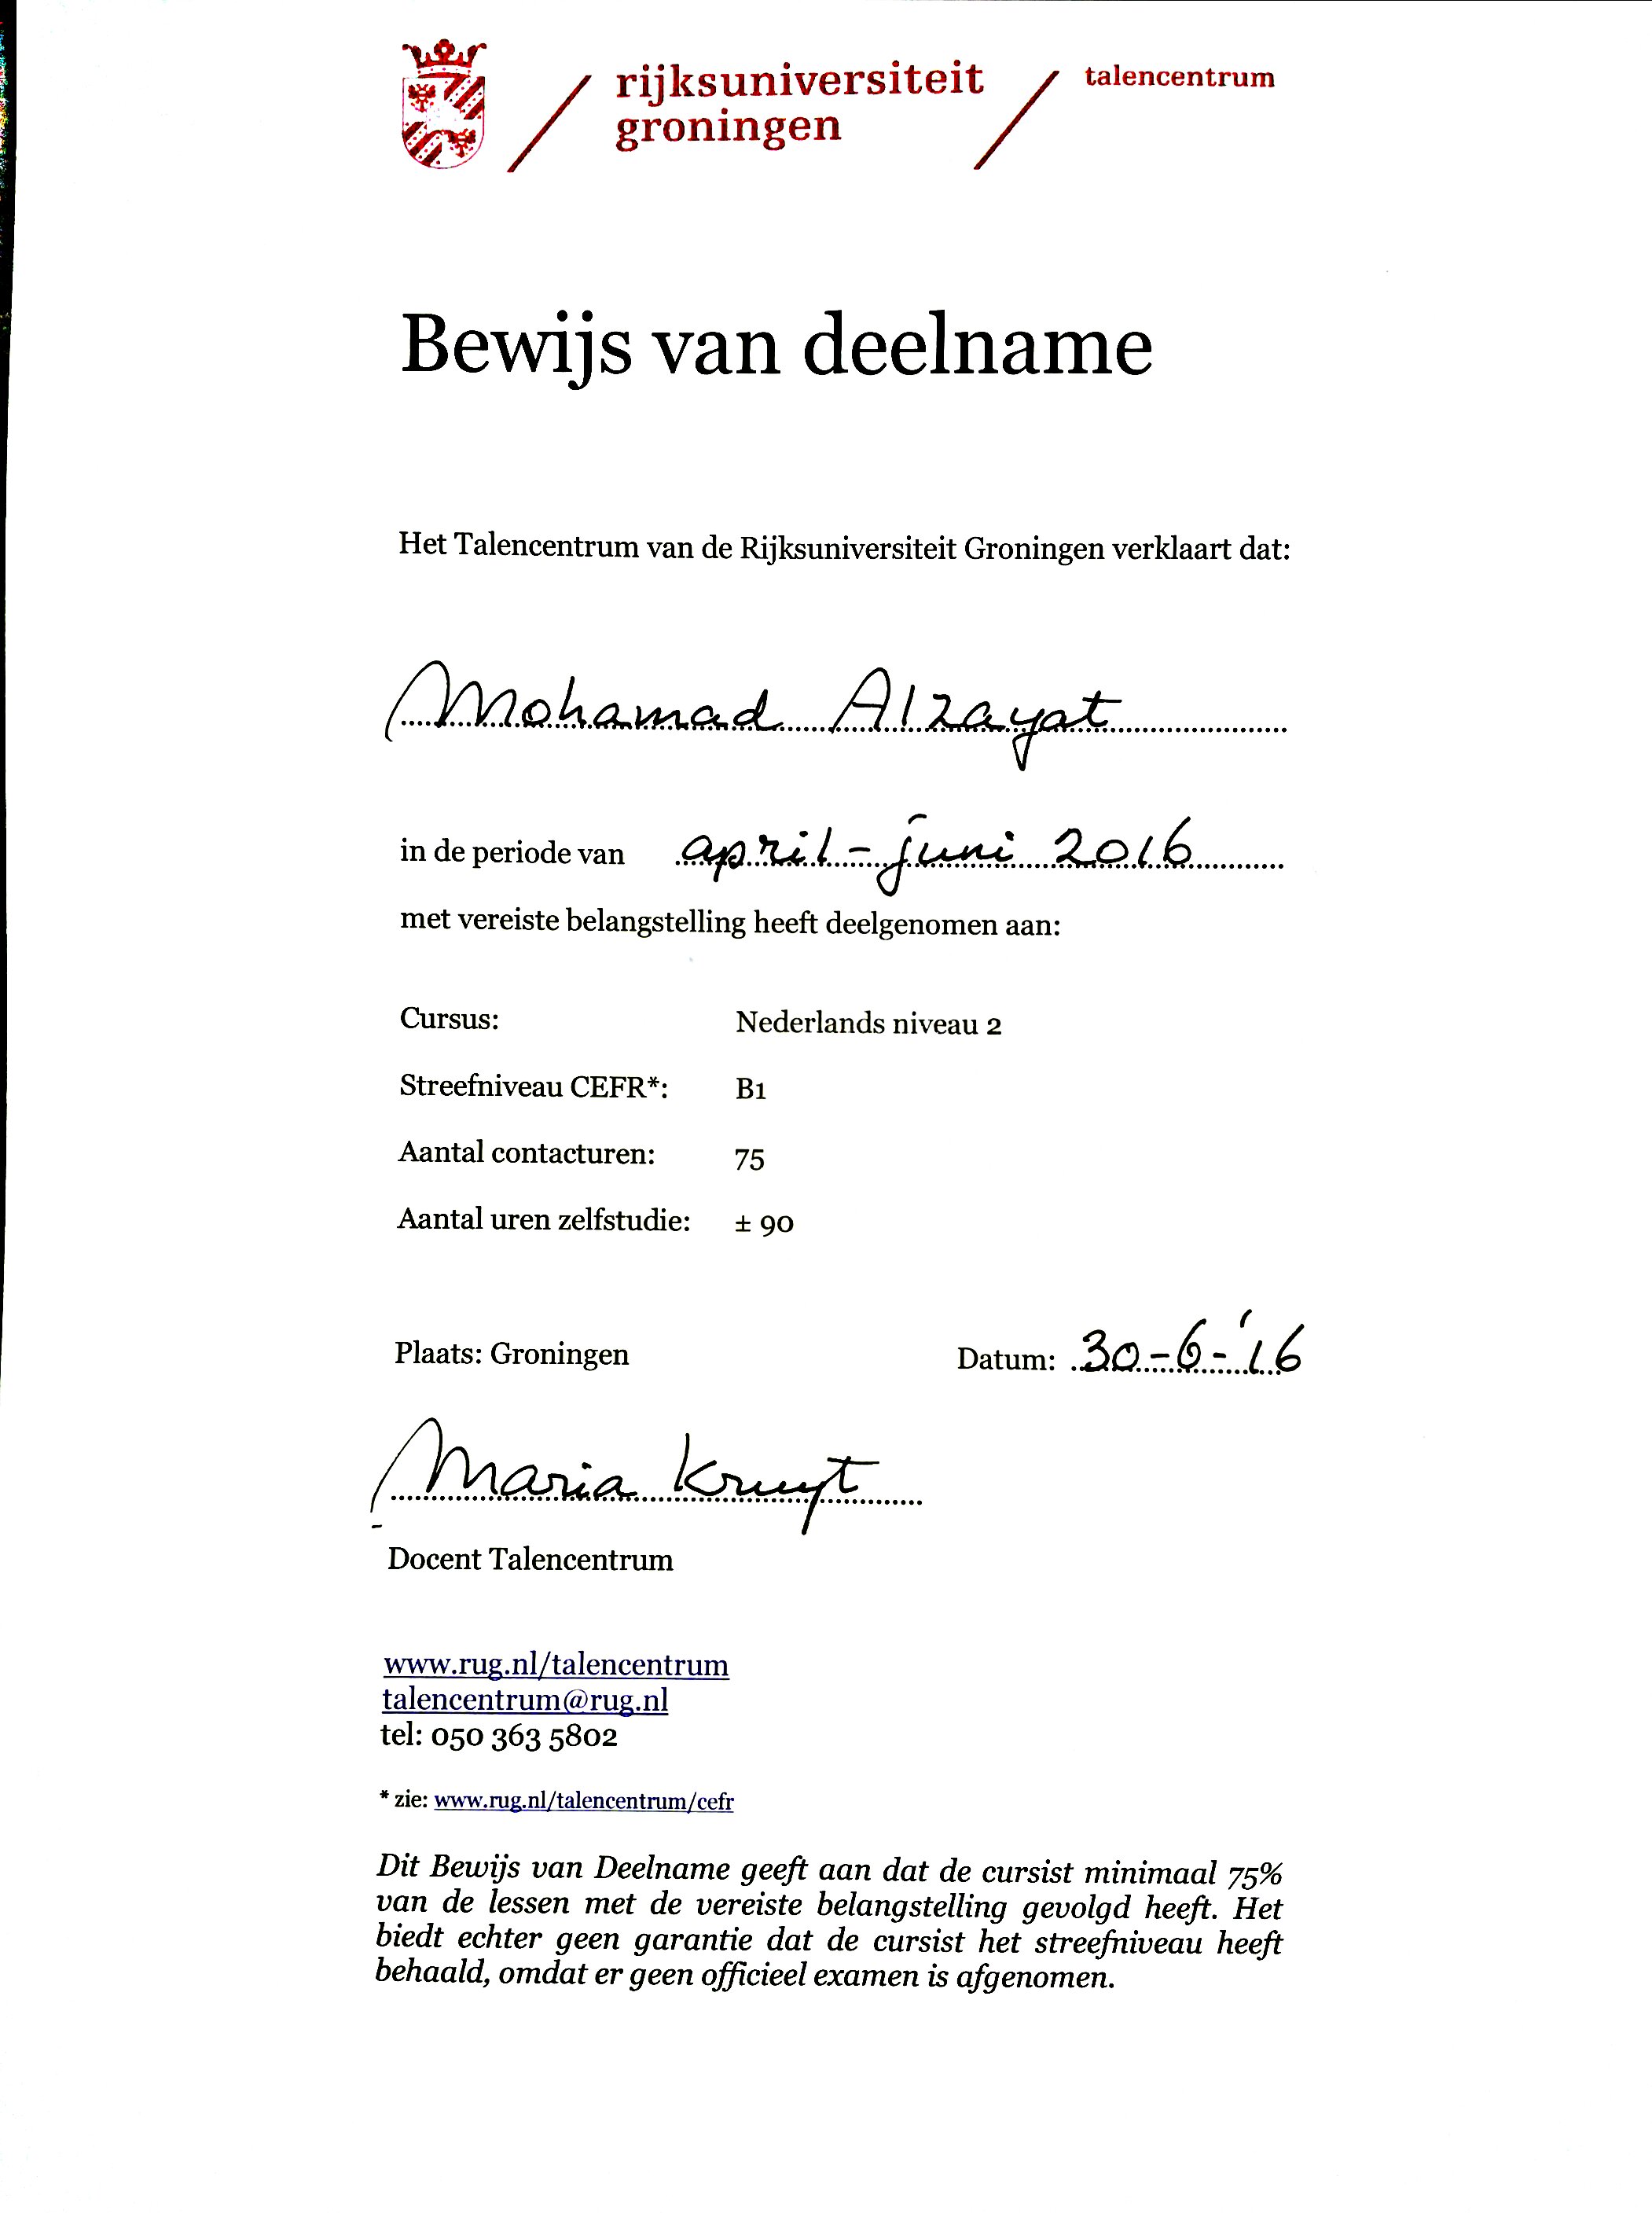 rijksuniversiteit
groningen
talencentrum
Bewijs van deelname
Het Talencentrum van de Rijksuniversiteit Groningen verklaart dat:
Mohamad Alzayat
in de periode van april - juni 2016
met vereiste belangstelling heeft deelgenomen aan:
Cursus: Nederlands niveau 2
Streefniveau CEFR*: B1
Aantal contacturen: 75
Aantal uren zelfstudie: ± 90
Plaats: Groningen Datum: 30-6-'16
Maria Kruyt
Docent Talencentrum
www.rug.nl/talencentrum
talencentrum@rug.nl
tel: 050 363 5802
* zie: www.rug.nl/talencentrum/cefr
Dit Bewijs van Deelname geeft aan dat de cursist minimaal 75%
van de lessen met de vereiste belangstelling gevolgd heeft. Het
biedt echter geen garantie dat de cursist het streefniveau heeft
behaald, omdat er geen officieel examen is afgenomen.